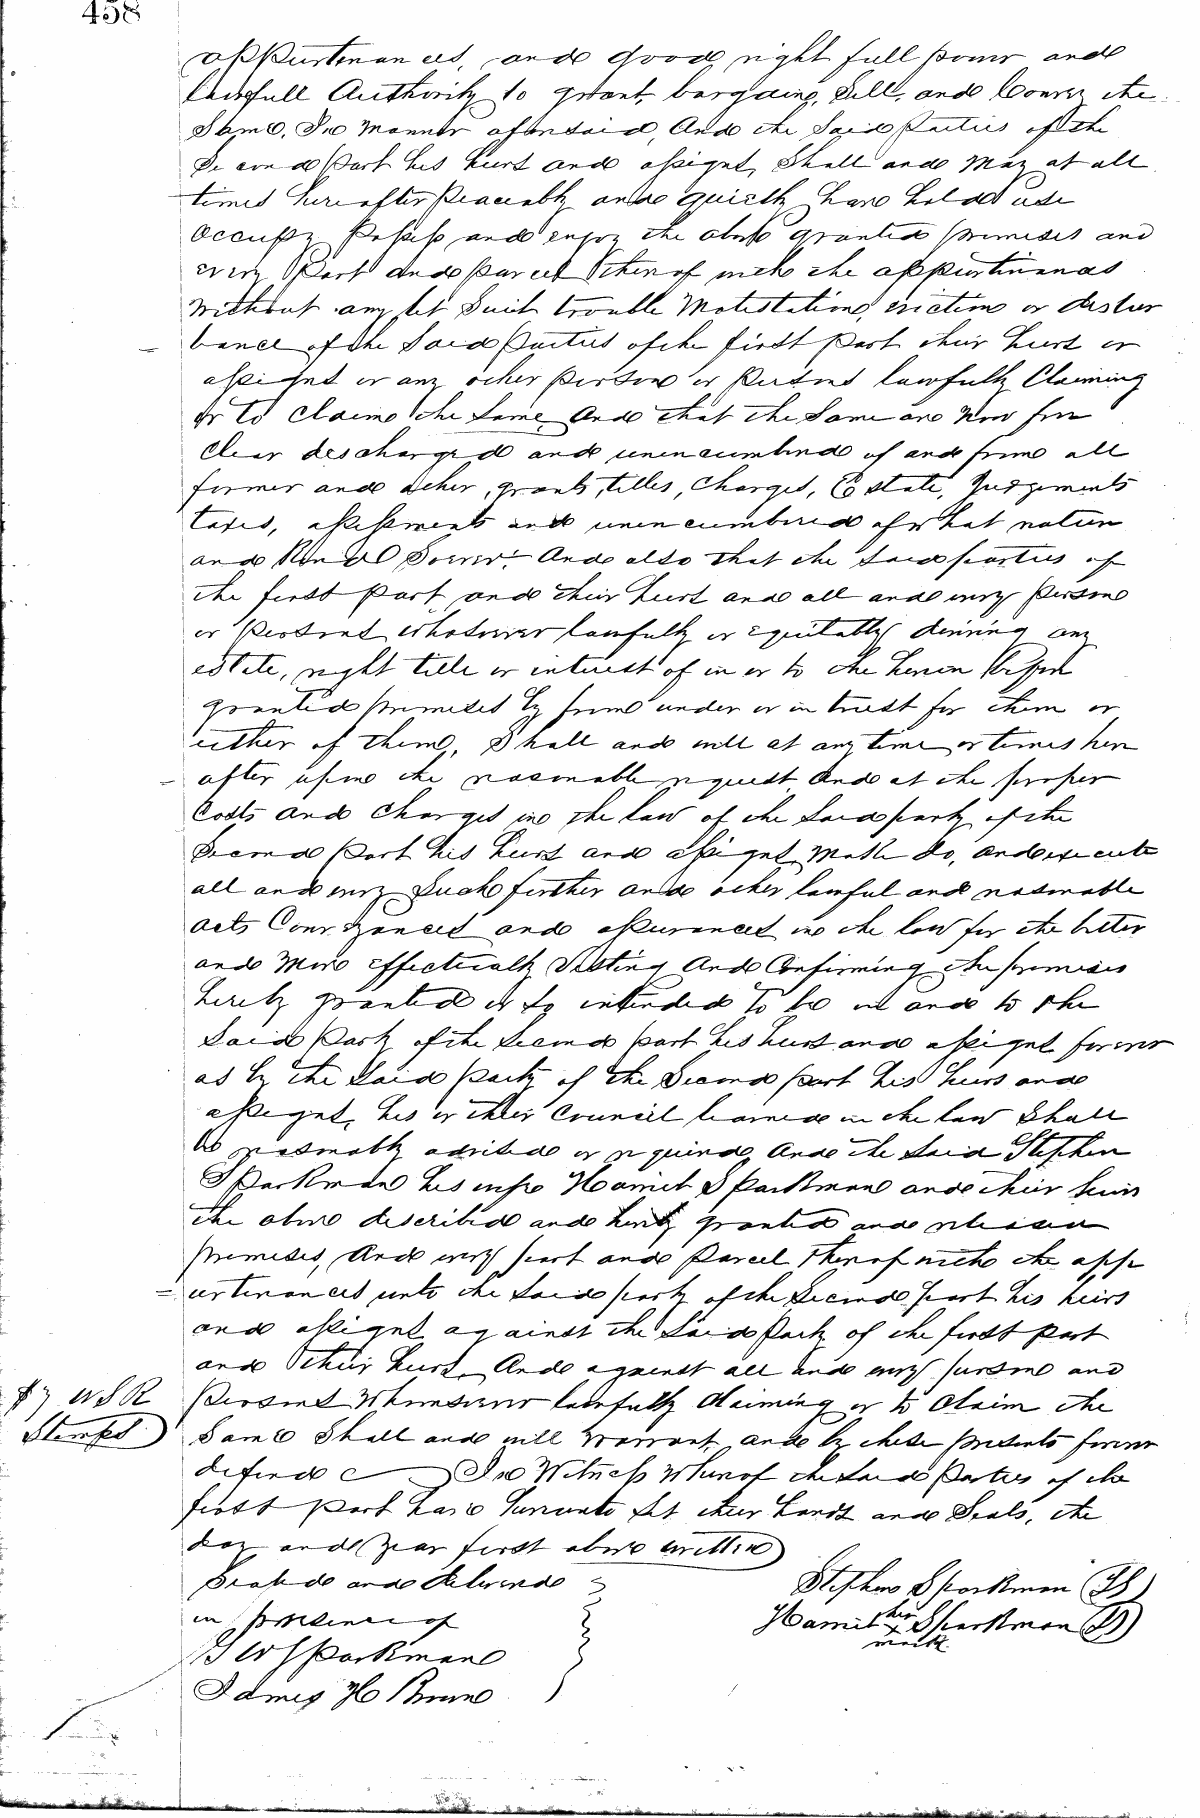 458
appurtenances, and good right full power and
lawfull Authority to grant, bargaine, Sell, and Convey the
Same, In Manner aforesaid, And the Said Parties of the
Second Part his heirs and assigns, Shall and May at all
times hereafter Peaceably and quietly have hold use
Occupy Possess and enjoy the above granted premises and
every Part and parcel thereof with the appurtinances
Without any let Suit trouble Molestation, eviction or distur
bance of the Said Parties of the first part their heirs or
assigns or any other person or persons lawfully Claiming
or to Claim the Same And that the Same are Now free
Clear descharged and unencumbered of and from all
former and other, grants, titles, Charges, Estate, Judgements
taxes, assessments and unencumbered of what nature
and Kind Soever. And also that the Said parties of
the first Part and their heirs and all and every Person
or Persons whatsoever lawfully or equitably deriving any
estate, right title or interest of in or to the herein before
granted premises by from under or in trust for them or
either of them, Shall and will at any time or times here
after upon the reasonable request And at the proper
Costs and Charges in the law of the Said party of the
Second Part his heirs and assigns Make do, and execute
all and every Such further and other lawful and reasonable
acts Conveyances and assurances in the law for the better
and More effectually Vesting And Confirming the premises
hereby granted or So intended To be in and to the
Said Party of the Second part his heirs and assigns forever
as by the Said Party of the Second part his heirs and
assigns, his or their Council learned in the law Shall
be reasonably advised or required And the Said Stephen
Sparkman his wife Harriet Sparkman and their heirs
the above described and hereby granted and released
premises, And every part and Parcel thereof with the app
urtinances unto the Said party of the Second part his heirs
and assigns against the Said Party of the first part
and their heirs, And against all and every person and
$7 U S R
Stamps
Persons Whomsoever lawfully Claiming or to Claim the
Same Shall and will Warrant, and by these presents forever
defend In Witness Whereof the Said Parties of the
first part have hereunto Set their hands and Seals, the
day and year first above written
Sealed and delivered
in presence of
Stephen Sparkman (LS)
Harriet her x mark Sparkman (LS)
Sparkman
James H